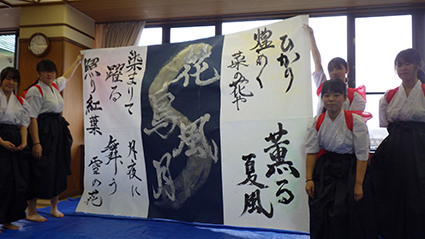 ひかり
煌めく
菜の花や
薫る
夏風
花鳥風月
染まりて
躍る
照り紅葉
月夜に
舞う
雪の花